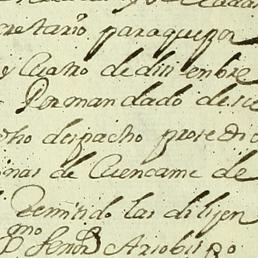 cretario para que por
y Cuatro de diziembre
Por mandado de su
cho despacho prosedio
inas de Cuencame de
Remitido las dilijen
mo Señor Arzobispo